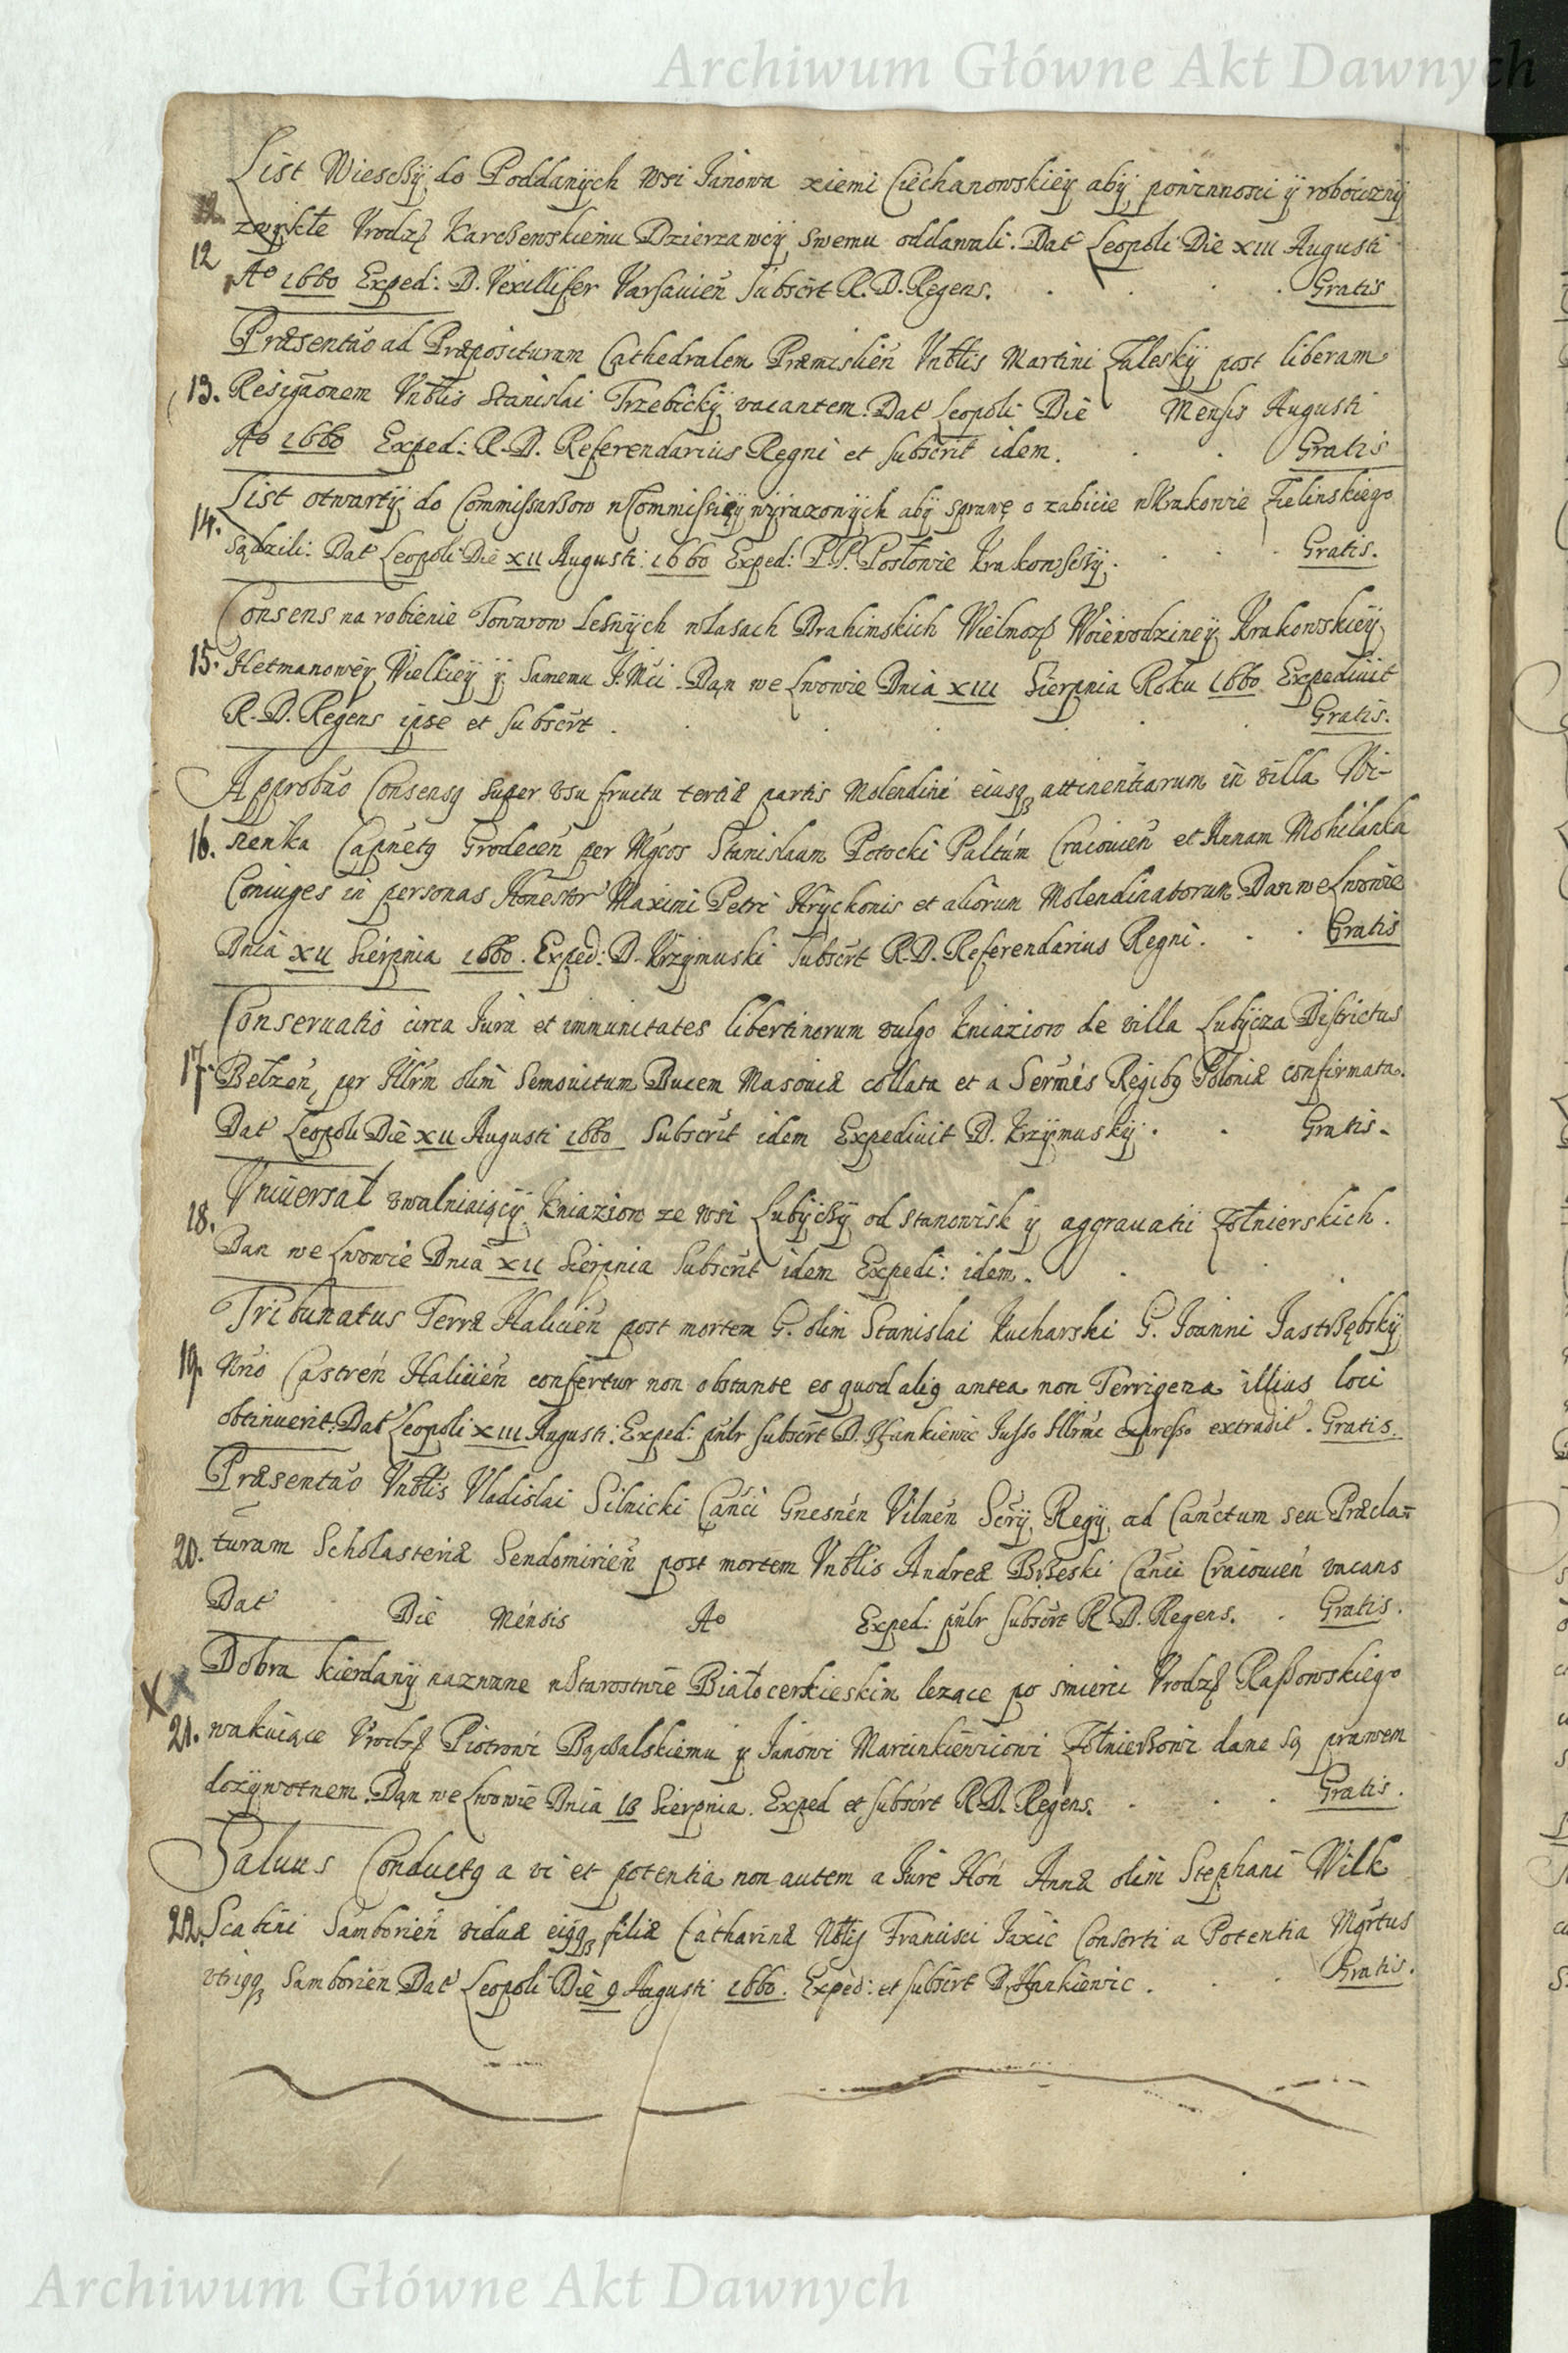 Archiwum Główne Akt Dawnych
List Wieschÿ do Poddanÿch wsi Janowa ziemi Ciechanowskieÿ abÿ powinnosci ÿ robociznÿ
12 zwÿkłe Vrodz. Karchewskiemu Dzierzawcÿ swemu oddawali. Dat Leopoli Die XIII Augusti
Ao 1660 Exped: D. Vexillifer Varsauien Subscrt R. D. Regens. Gratis
Præsentao ad Præposituram Cathedralem Præmislien Vnblis Martini Zaleskÿ post liberam
13. Resigãonem Vnblis Stanislai Trzebickÿ vacantem. Dat Leopoli Die Mensis Augusti
Ao 1660 Exped: R. D. Referendarius Regni et subscrit idem. Gratis
List otwartÿ do Commissarßow w Commissieÿ wÿrazonÿch abÿ sprawę o zabicie w Krakowie Zielinskiego
14. Sądzili. Dat Leopoli Die XII Augusti: 1660 Exped: P.P. Posłowie Krakowscÿ. Gratis.
Consens na robienie Towarow Lesnÿch w Lasach Drahimskich Wielmoz Woiewodzineÿ Krakowskieÿ
15. Hetmanoweÿ Wielkieÿ ÿ Samemu J. Mci. Dan we Lwowie Dnia XIII Sierpnia Roku 1660 Expediuit
R. D. Regens ipse et subscrt. Gratis.
Approbao Consensq super vsu fructu tertiæ partis Molendini eiusq attinentiarum in villa Wi-
16. szenka Capnetq Grodecen per Mgcos Stanislaum Potocki Paltm Cracouien et Annam Mohilanka
Coniuges in personas Honestor Maximi Petri Hrÿckonis et aliorum Molendinatorum Dan we Lwowie
Dnia XII Sierpnia 1660. Exped: D. Krzÿmuski Subscrt R. D. Referendarius Regni. Gratis
Conseruatio circa Jura et immunitates libertinorum vulgo Kniaziow de villa Lubÿcza Districtus
17. Belzen, per Illrm olim Semouitum Ducem Masouiæ collata et a Sermis Regibq Poloniæ confirmata.
Dat Leopoli Die XII Augusti 1660 Subscrit idem Expediuit D. Krzÿmuskÿ. Gratis.
Vniuersał vwalniaiącÿ Kniaziow ze wsi Lubÿchÿ od stanowisk ÿ aggrauatii Zołnierskich.
18. Dan we Lwowie Dnia XII Sierpnia Subscrit idem Expedi: idem.
Tribunatus Terræ Halicien post mortem G. olim Stanislai Kucharski G. Joanni Jastrßębskÿ
19. Nrio Castren Halicien confertur non obstante eo quod aliq antea non Terrigena illius loci
obtinuerit. Dat Leopoli XIII Augusti. Exped: pnlr subscrt D. Hankiewic Jusso Illrmi expresso extradit. Gratis.
Præsentao Vnblis Vladislai Silnicki Canci Gnesnen Vilnen Scrÿ Regÿ ad Canctum seu Præla-
20. turam Scholasteriæ Sendomirien post mortem Vnblis Andreæ Brßeski Canci Cracouien vacans
Dat Die Mensis Ao Exped: pnlr subscrt R. D. Regens. Gratis.
XX
Dobra Kierdanÿ nazwane w Starostwie Białocerkieskim lezące po smierci Vrodz Raßowskiego
21. wakuiące Vrodz Piotrowi Bąkalskiemu ÿ Janowi Marcinkiewiczowi Zołnierßowi dane są prawem
dozÿwotnem. Dan we Lwowie Dnia 13 Sierpnia. Exped et subscrt R. D. Regens. Gratis.
Saluus Conductq a vi et potentia non autem a Jure Hon Annæ olim Stephani Wilk
22. Scabini Samborien viduæ eiqq filiæ Catharinæ Nblis Francisci Jaxic Consorti a Potentia Mgrtus
vtriqq Samborien Dat Leopoli Die 9 Augusti 1660. Exped: et subscrt D. Hankiewic. Gratis.
Archiwum Główne Akt Dawnych